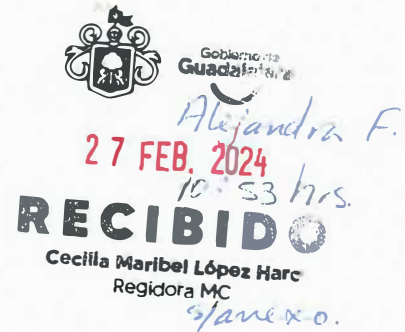 Gobierno de
Guadalajara
Alejandra F.
27 FEB. 2024
10:53 hrs.
RECIBIDO
Cecilia Maribel López Haro
Regidora MC
s/anexo.